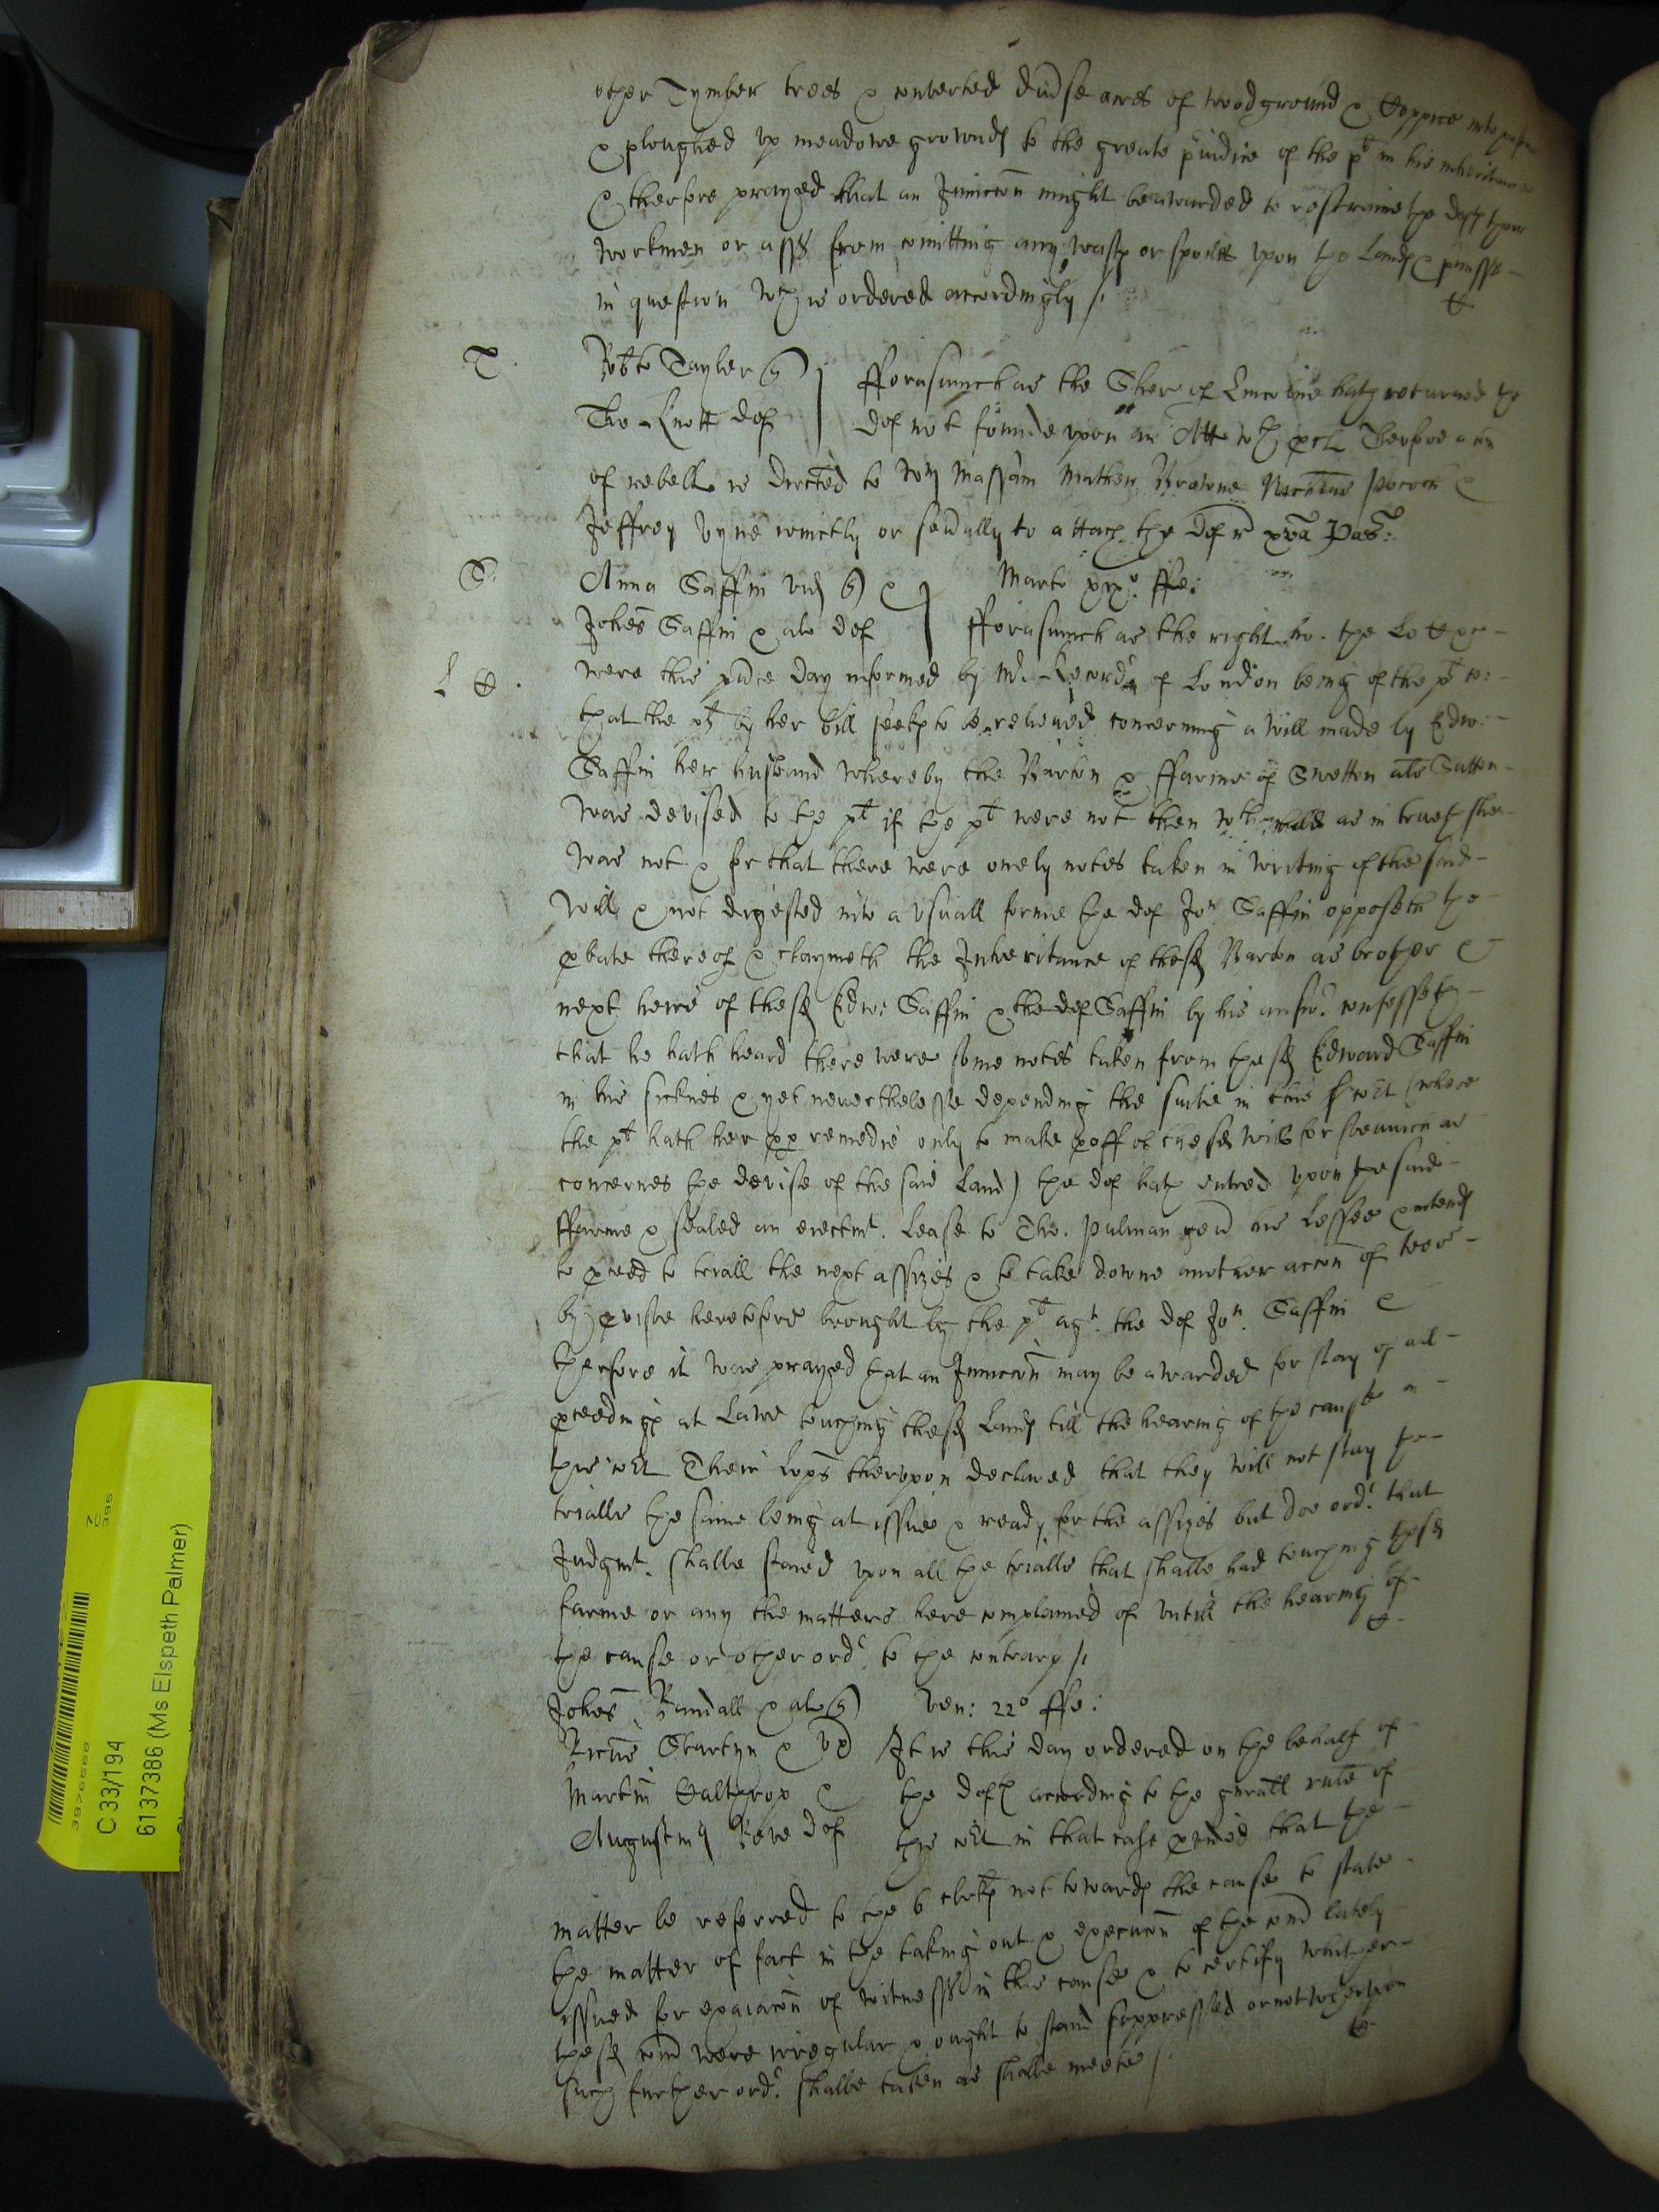 other Tymber trees & converted diverse acres of woodground & Coppice into pasture
& ploughed up meadowe grownds to the greate p'iudice of the pt in his inheritance
& therfore prayed that an Iniunccon might be awarded to restraine the defts their
workmen or assignes from comitting any wast or spoiles upon the Lands & p'misses
in question wch is ordered accordingly /.
T.
Robto Tayler q)
Tho. Knott def
fforasmuch as the Sher of Lincolne hath returned the
def not founde upon an Att wth procl Therfore a com
of rebell is directed to Wm Massam Mathew Browne Nicholas Pocock &
Jeffrey Vyne ioinctly or sevally to attach the def r xva Pas:
S.
Anna Saffin vid q) &
Johes Saffin & al def
Marto xix° ffe:
fforasmuch as the right ho. the Lo
L C.
were this p'nte day informed by Mr Recorder of London being of the pts co:
that the pt by her bill seeks to be releived concerning a will made by Edw:
Saffin her husband whereby the Barton & ffarme of Swetton als Sutton
was devised to the pt if the pt were not then wth child as in trueth she
was not & for that there were onely notes taken in writing of the said
will & not digested into a usuall forme the def Jon Saffin opposeth the
p'bate thereof & claymeth the Inheritance of the sd Barton as brother &
next heire of the sd Edw: Saffin & the def Saffin by his answ. confesseth
that he hath heard there were some notes taken from the sd Edward Saffin
in his sicknes & yet neverthelesse depending the suite in this Court (where
the pt hath her pp remedie only to make proff of the sd will for soe much as
concernes the devise of the said Land) the def hath entred upon the said
ffarme & sealed an eiectmt. Lease to Tho. Pulman gen his Lessee & intends
to p'ceed to triall the next assizes & to take downe another accon of tres
by p'viso heretofore brought by the pt agt. the def Jon. Saffin &
therfore it was prayed that an Iniunccon may be awarded for stay of all
p'ceedings at Lawe touching the sd Lands till the hearing of the cause in
this Court Their Lops therupon declared that they will not stay the
trialls the same being at issue & ready for the assizes but doe ordr that
Judgmt. shalbe staied upon all the trialls that shalbe had touching the sd
farme or any the matters here complained of untill the hearing of
the cause or other ordr to the contrary /.
Johes Randall & al q)
Ven: 22° ffe:
Martin Calthrop &
Augustin def
It is this day ordered on the behalf of
the defts according to the gen'all rule of
this Court in that case p'vided that the
matter be referred to the 6 clerks not towards the cause to state
the matter of fact in the taking out & execucon of the com lately
issued for exaiacon of witnesses in this cause & to certify whether
the sd com were irregular & ought to stand suppressed or not wherupon
such further ordr. shalbe taken as shalbe meete /.
39765568
C 33/194
6137386 (Ms Elspeth Palmer)